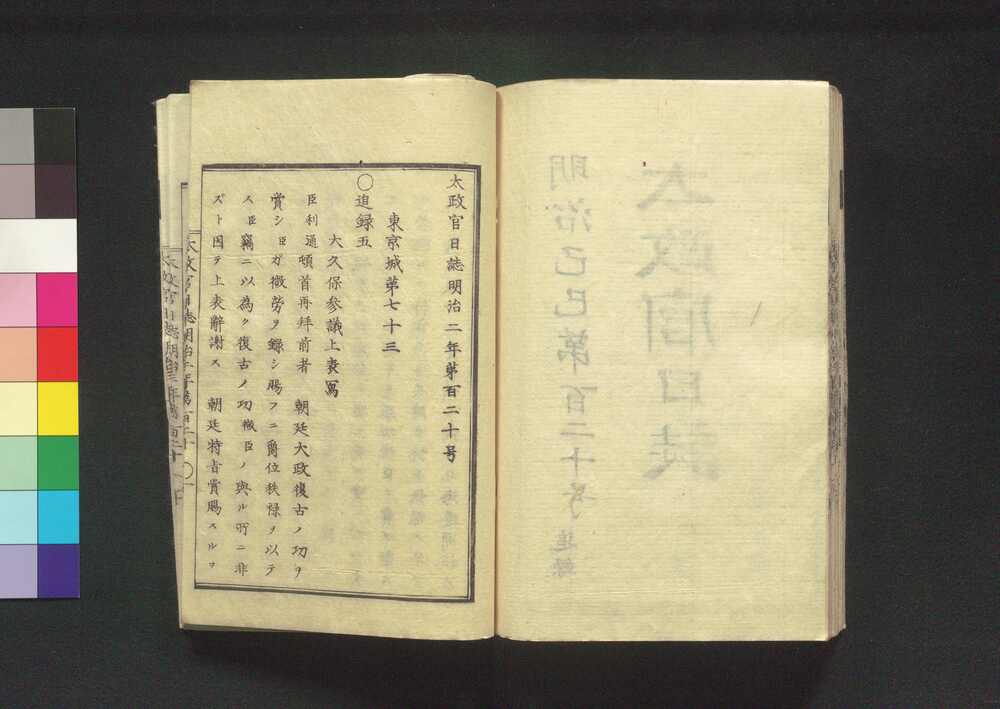 太政官日誌明治二年第百二十号
東京城第七十三
〇追録五
大久保参議上表寫
臣利通頓首再拜前者　朝廷大政復古ノ功ヲ
賞シ臣ガ微勞ヲ録シ賜フニ爵位秩祿ヲ以テ
ス臣竊ニ以為ク復古ノ功微臣ノ與ル所ニ非
ズト因テ上表辭謝ス　朝廷特旨賞賜スルヿ
太政官日誌明治二年第百二十　〇一
明治己巳第百二十号　追録
太政官日誌